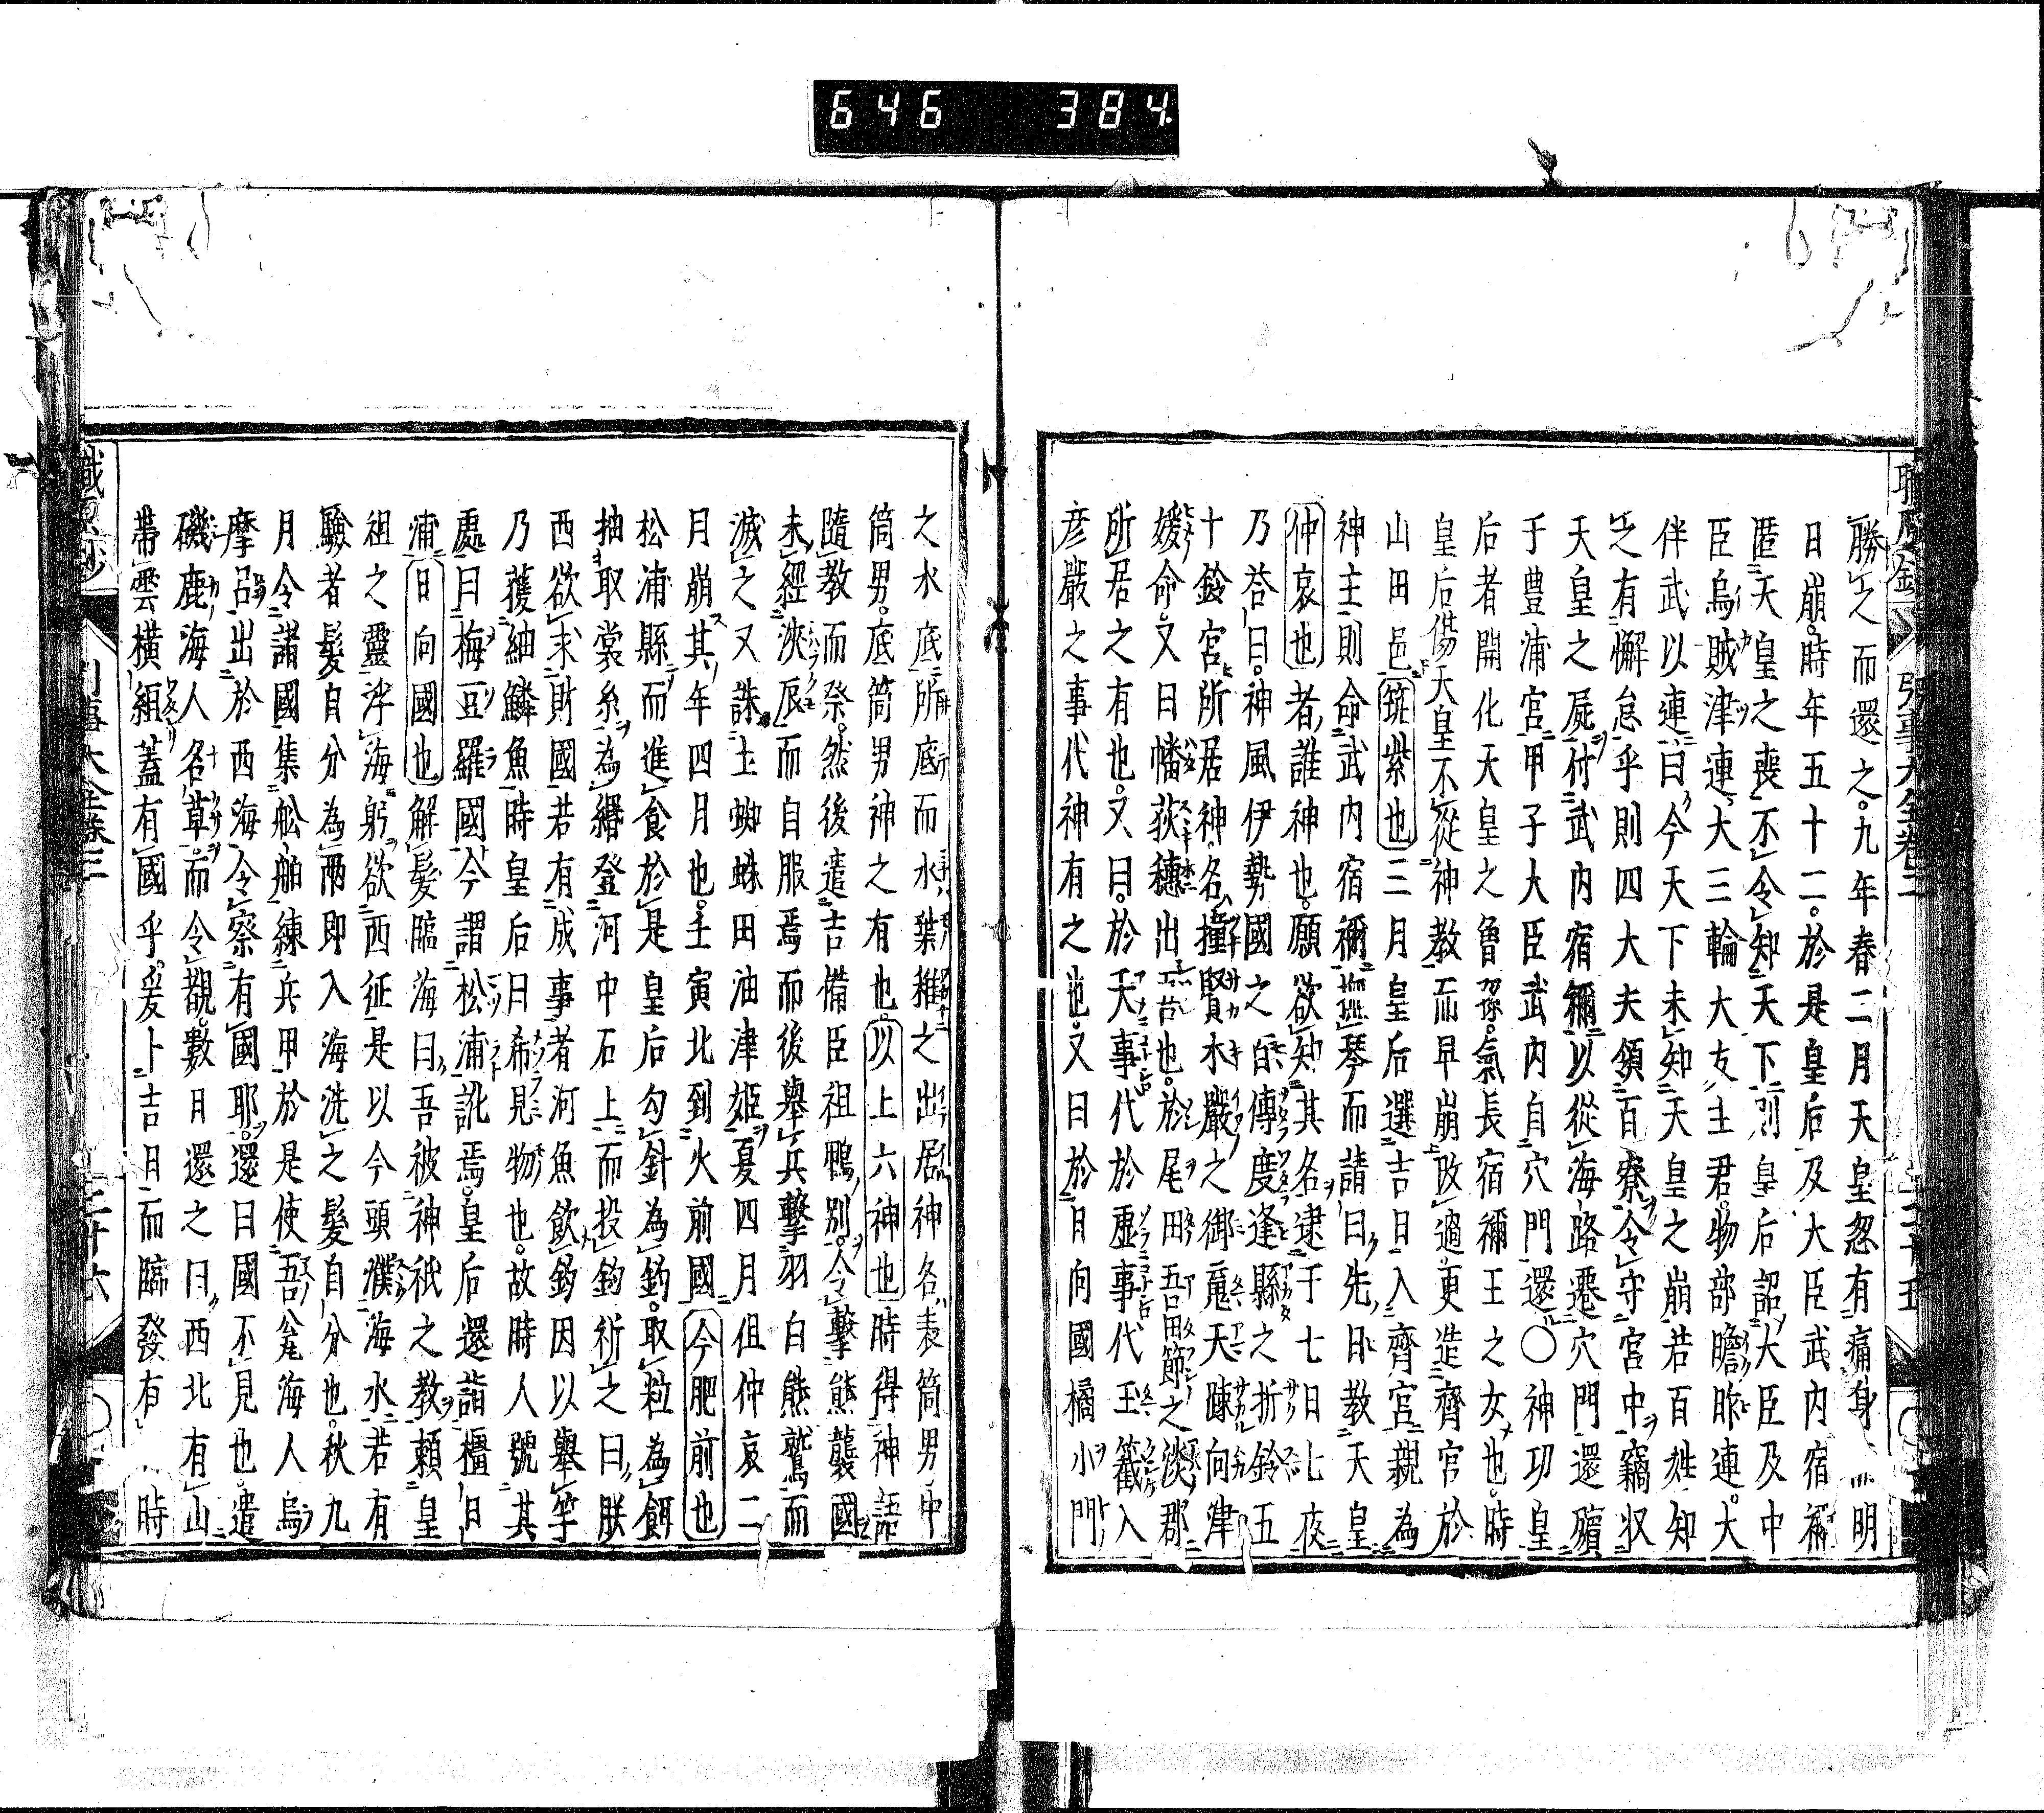 646 384
勝之而還之。九年春二月天皇忽有痛身 明
日崩。時年五十二。於是皇后及大臣武内宿禰
匿天皇之喪不令知天下則皇后詔大臣及中
臣烏賊津連大三輪大友主君。物部膽咋連。大
伴武以連曰今天下未知天皇之崩若百姓知
之有懈怠乎則四大夫領百寮令守宮中竊収
天皇之屍付武内宿禰以從海路遷穴門還殯
于豊浦宮甲子大臣武内自穴門還〇神功皇
后者開化天皇之曽孫。氣長宿禰王之女也。時
皇后傷天皇不從神教而早崩更造齊宮於
山田邑筑紫也三月皇后選吉日入齊宮親為
神主則命武内宿禰撫琴而請曰先日教天皇
仲哀也者誰神也。願欲知其名逮于七日七夜
乃荅曰。神風伊勢國之百傳度逢縣之折鈴五
十鈴宮所居神。名撞賢木嚴之御䰟天疎向津
媛命。又曰幡荻穂出吾也。於尾田吾田節之淡郡
所居之有也。又曰。於天事代於虚事代玉籖入
彦嚴之事代神有之也。又曰於日向國橘小門
之水底所底而水葉稚之出居神名表筒男中
筒男。底筒男神之有也。以上六神也時得神語
隨教而祭。然後遣吉備臣祖鴨別。令擊熊襲國
未經浹辰而自服焉而後擧兵擊羽白熊鷲而
滅之又誅土蜘蛛田油津姫夏四月但仲哀二
月崩其年四月也。壬寅北到火前國今肥前也
松浦縣而進食於是皇后勾針為鈎。取粒為餌
抽取裳糸為緡登河中石上而投鈎祈之曰朕
西欲求財國若有成事者河魚飲鈎因以擧竿
乃獲細鱗魚時皇后曰希見物也。故時人號其
處曰梅豆羅國今謂松浦訛焉。皇后還詣橿日
浦日向國也解髮臨海曰吾被神祇之教頼皇
祖之靈浮海躬欲西征是以今頭濮海水若有
驗者髮自分為兩即入海洗之髮自分也。秋九
月令諸國集舩舶練兵甲於是使吾瓮海人烏
摩呂出於西海令察有國耶。還曰國不見也。遣
磯鹿海人名草。而令覩。數日還之曰西北有山
帶雲横組蓋有國乎。爰卜吉日而臨發有 時